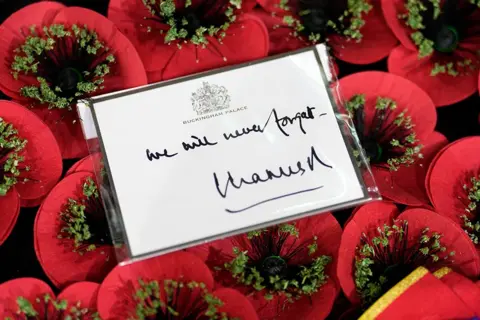 BUCKINGHAM PALACE
we will never forget -
Charles R